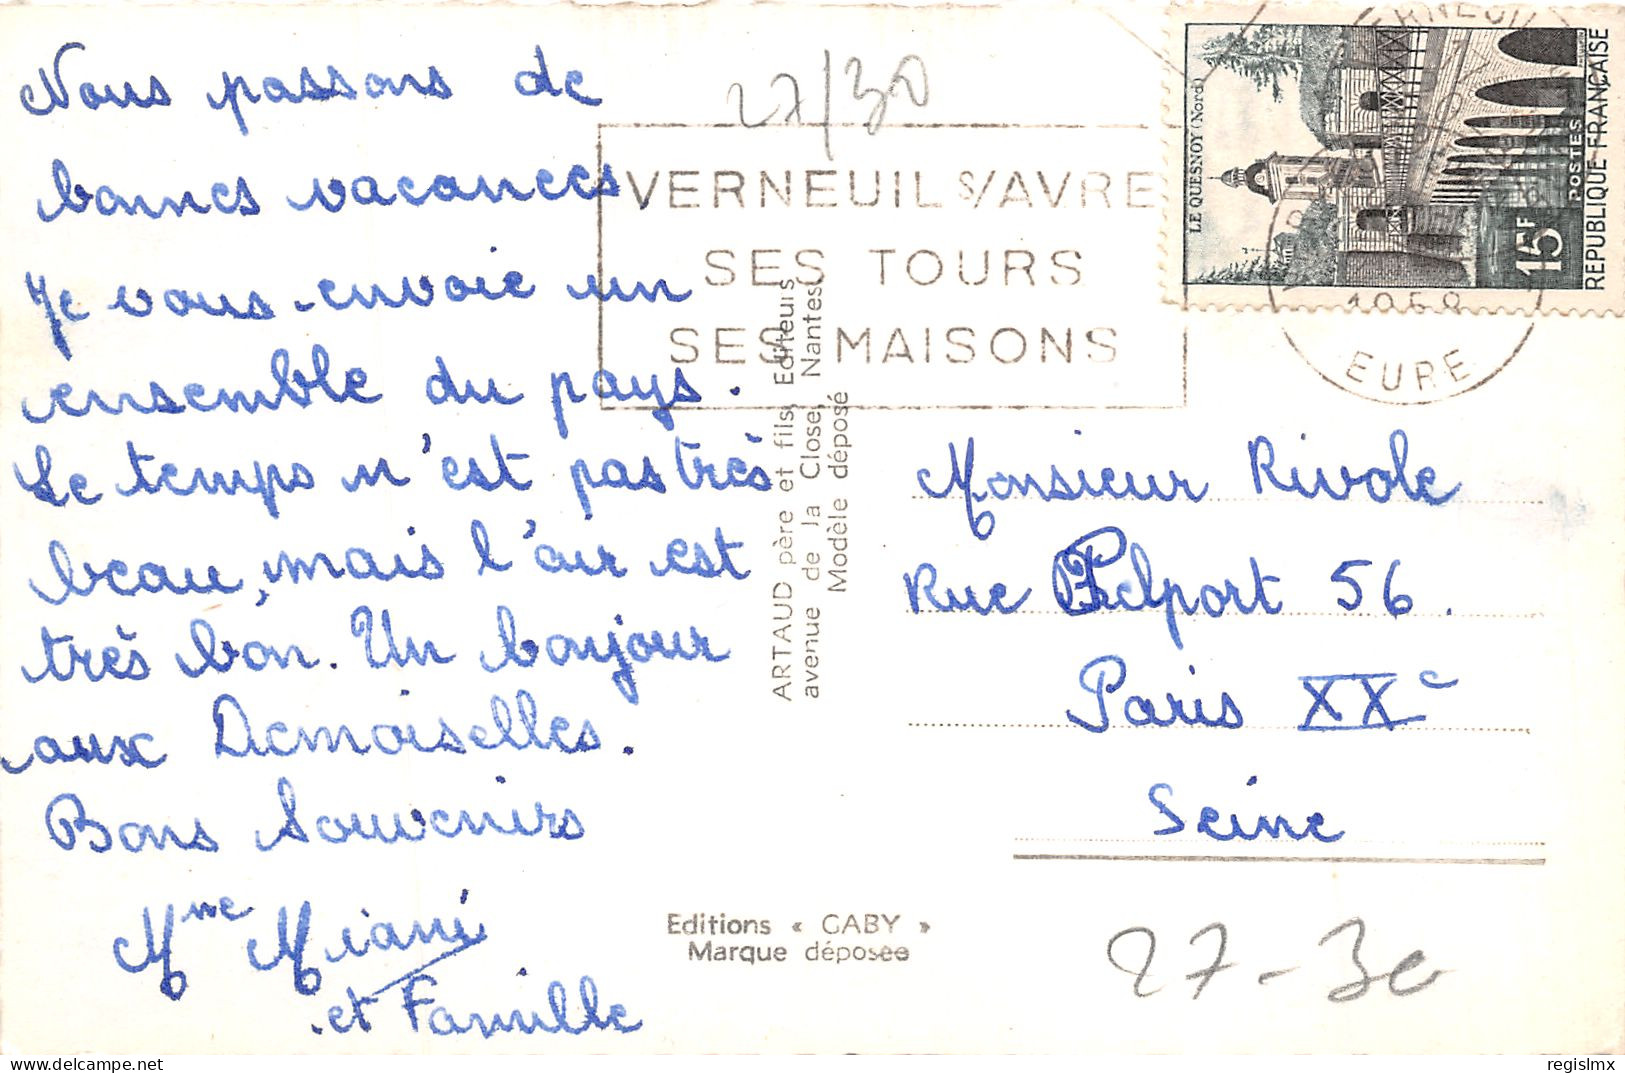 Nous passons de
bonnes vacances,
Je vous envoie un
ensemble du pays.
Le temps n'est pas très
beau, mais l'air est
très bon. Un bonjour
aux Demoiselles.
Bons Souvenirs
Mme Miani
et Famille
27/30
VERNEUIL S/AVRE
SES TOURS
SES MAISONS
ARTAUD père et fils, Editeurs
avenue de la Close, Nantes
Modèle déposé
VERNEUIL
1958
EURE
LE QUESNOY (Nord)
15F
POSTES
REPUBLIQUE FRANÇAISE
Monsieur Rivole
Rue Pelport 56.
Paris XXe
Seine
Editions « GABY »
Marque déposée
27-30
www.delcampe.net
regislmx